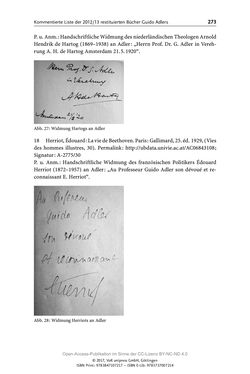 Kommentierte Liste der 2012/13 restituierten Bücher Guido Adlers 273
P. u. Anm.: Handschriftliche Widmung des niederländischen Theologen Arnold
Hendrik de Hartog (1869–1938) an Adler: „Herrn Prof. Dr. G. Adler in Vereh-
rung A. H. de Hartog Amsterdam 21.5.1920“.
Herrn Prof. Dr. G. Adler
in Verehrung
A. H. de Hartog
Amsterdam 21/5 20
Abb. 27: Widmung Hartogs an Adler
18 Herriot, Édouard: La vie de Beethoven. Paris: Gallimard, 25. éd. 1929, (Vies
des hommes illustres, 30). Permalink: http://ubdata.univie.ac.at/AC06843108;
Signatur: A-2775/30
P. u. Anm.: Handschriftliche Widmung des französischen Politikers Édouard
Herriot (1872–1957) an Adler: „Au Professeur Guido Adler son dévoué et re-
connaissant E. Herriot“.
Au Professeur
Guido Adler
son dévoué
et reconnaissant
E Herriot
Abb. 28: Widmung Herriots an Adler
Open-Access-Publikation im Sinne der CC-Lizenz BY-NC-ND 4.0
© 2017, V&R unipress GmbH, Göttingen
ISBN Print: 9783847107217 – ISBN E-Lib: 9783737007214